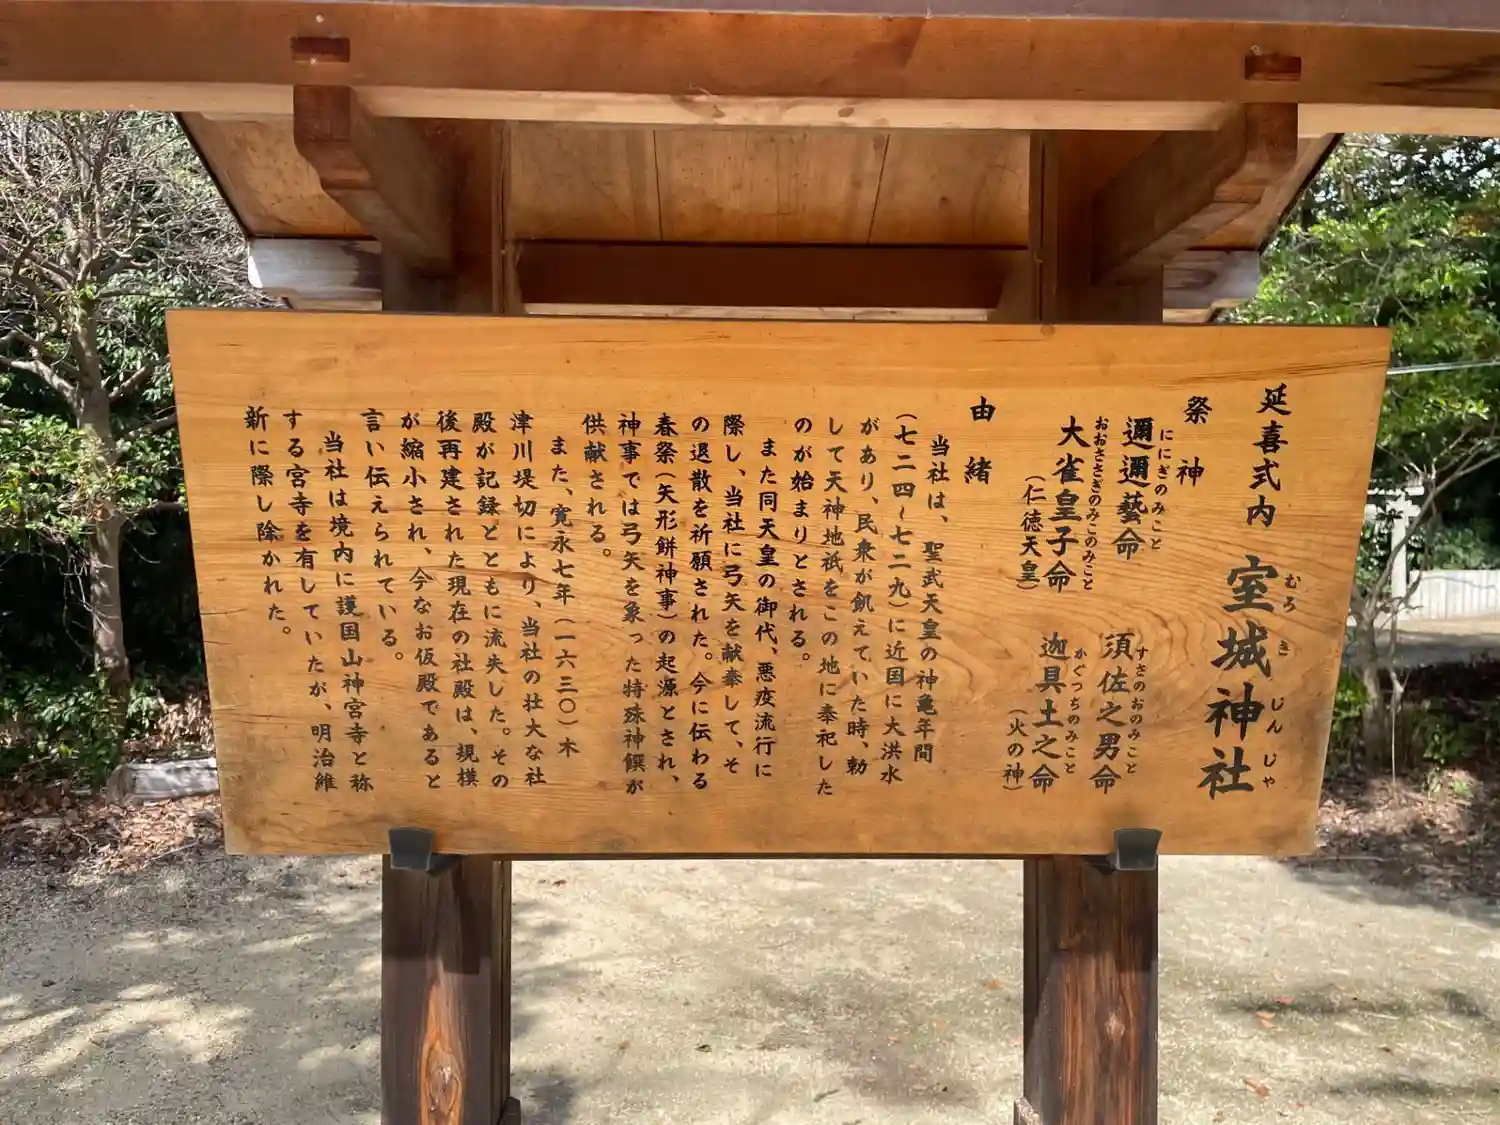 延喜式内 室城神社
むろ き じん じゃ
祭神
ににぎのみこと
彌邇藝命
すさのおのみこと
須佐之男命
おおささぎのみこのみこと
大雀皇子命
(仁徳天皇)
かぐつちのみこと
迦具土之命
(火の神)
由緒
当社は、聖武天皇の神亀年間
(七二四~七二九)に近国に大洪水
があり、民衆が飢えていた時、勅
して天神地祇をこの地に奉祀した
のが始まりとされる。
また同天皇の御代、悪疫流行に
際し、当社に弓矢を献奉して、そ
の退散を祈願された。今に伝わる
春祭(矢形餅神事)の起源とされ、
神事では弓矢を象った特殊神饌が
供献される。
また、寛永七年(一六三〇)木
津川堤切により、当社の壮大な社
殿が記録とともに流失した。その
後再建された現在の社殿は、規模
が縮小され、今なお仮殿であると
言い伝えられている。
当社は境内に護国山神宮寺と称
する宮寺を有していたが、明治維
新に際し除かれた。